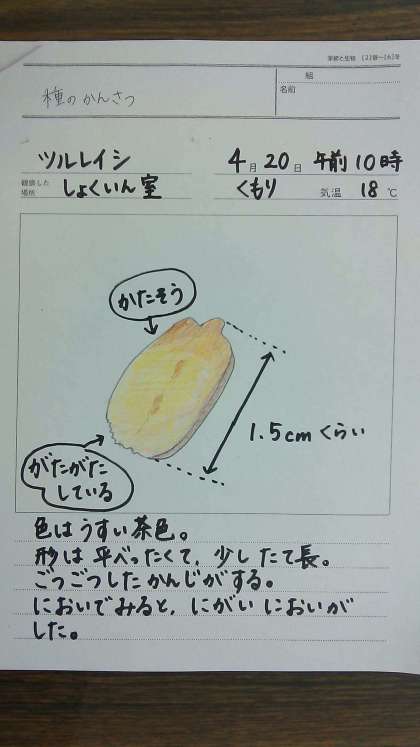 種のかんさつ
組
名前
ツルレイシ 4月20日 午前10時
観察した場所 しょくいん室 くもり 気温 18℃
かたそう
1.5cmくらい
がたがた
している
色はうすい茶色。
形は平べったくて、少したて長。
ごつごつしたかんじがする。
においでみると、にがいにおいが
した。